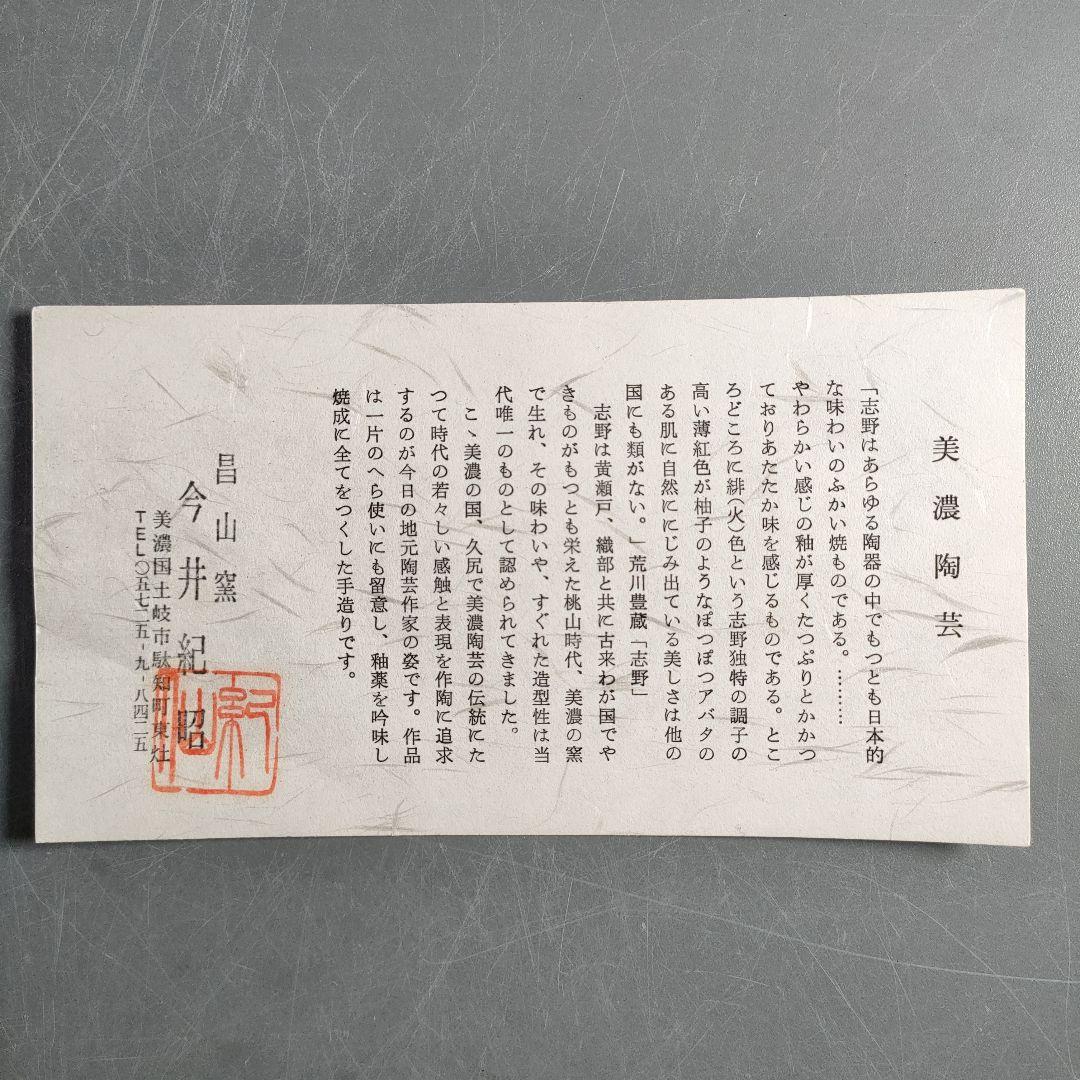 美濃陶芸
「志野はあらゆる陶器の中でもつとも日本的
な味わいのふかい焼ものである。…………
やわらかい感じの釉が厚くたつぷりとかかつ
ておりあたたか味を感じるものである。とこ
ろどころに緋(火)色という志野独特の調子の
高い薄紅色が柚子のようなぽつぽつアバタの
ある肌に自然ににじみ出ている美しさは他の
国にも類がない。」荒川豊蔵「志野」
志野は黄瀬戸、織部と共に古来わが国でや
きものがもつとも栄えた桃山時代、美濃の窯
で生れ、その味わいや、すぐれた造型性は当
代唯一のものとして認められてきました。
こゝ美濃の国、久尻で美濃陶芸の伝統にた
つて時代の若々しい感触と表現を作陶に追求
するのが今日の地元陶芸作家の姿です。作品
は一片のへら使いにも留意し、釉薬を吟味し
焼成に全てをつくした手造りです。
昌山窯
今井紀昭
美濃国土岐市駄知町東灶
TEL〇五七二五-九-八四二五